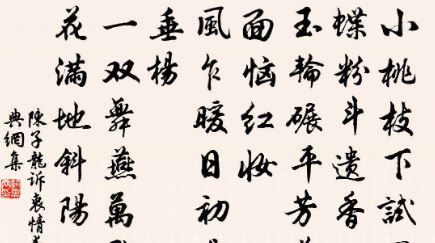 小桃枝下試
蝶粉斗遗香
玉輪碾平芳
面恼红妆
風乍暖日初
垂楊
一双舞燕萬
花满地斜陽
陳子龍訴衷情
典網集